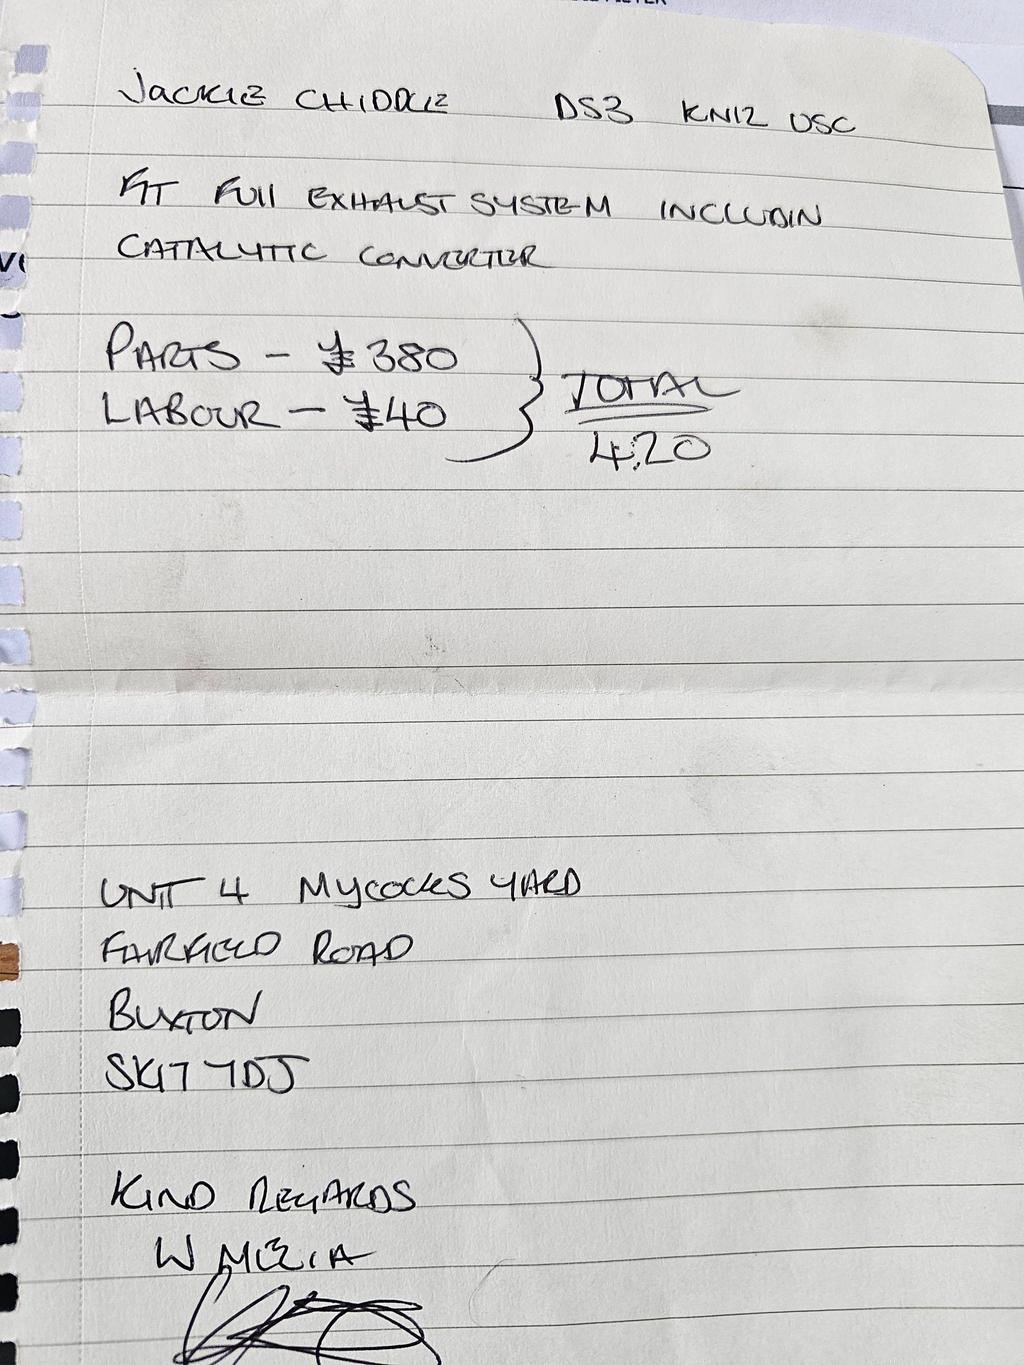 JACKIE CHIDDLE DS3 KN12 USC
FIT FUll EXHAUST SYSTEM INCLUDIN
CATALYTIC CONVERTER
PARTS - £380
LABOUR - £40
TOTAL
420
UNIT 4 MYCOCKS YARD
FAIRFIELD ROAD
BUXTON
SK17 7DJ
KIND REGARDS
W